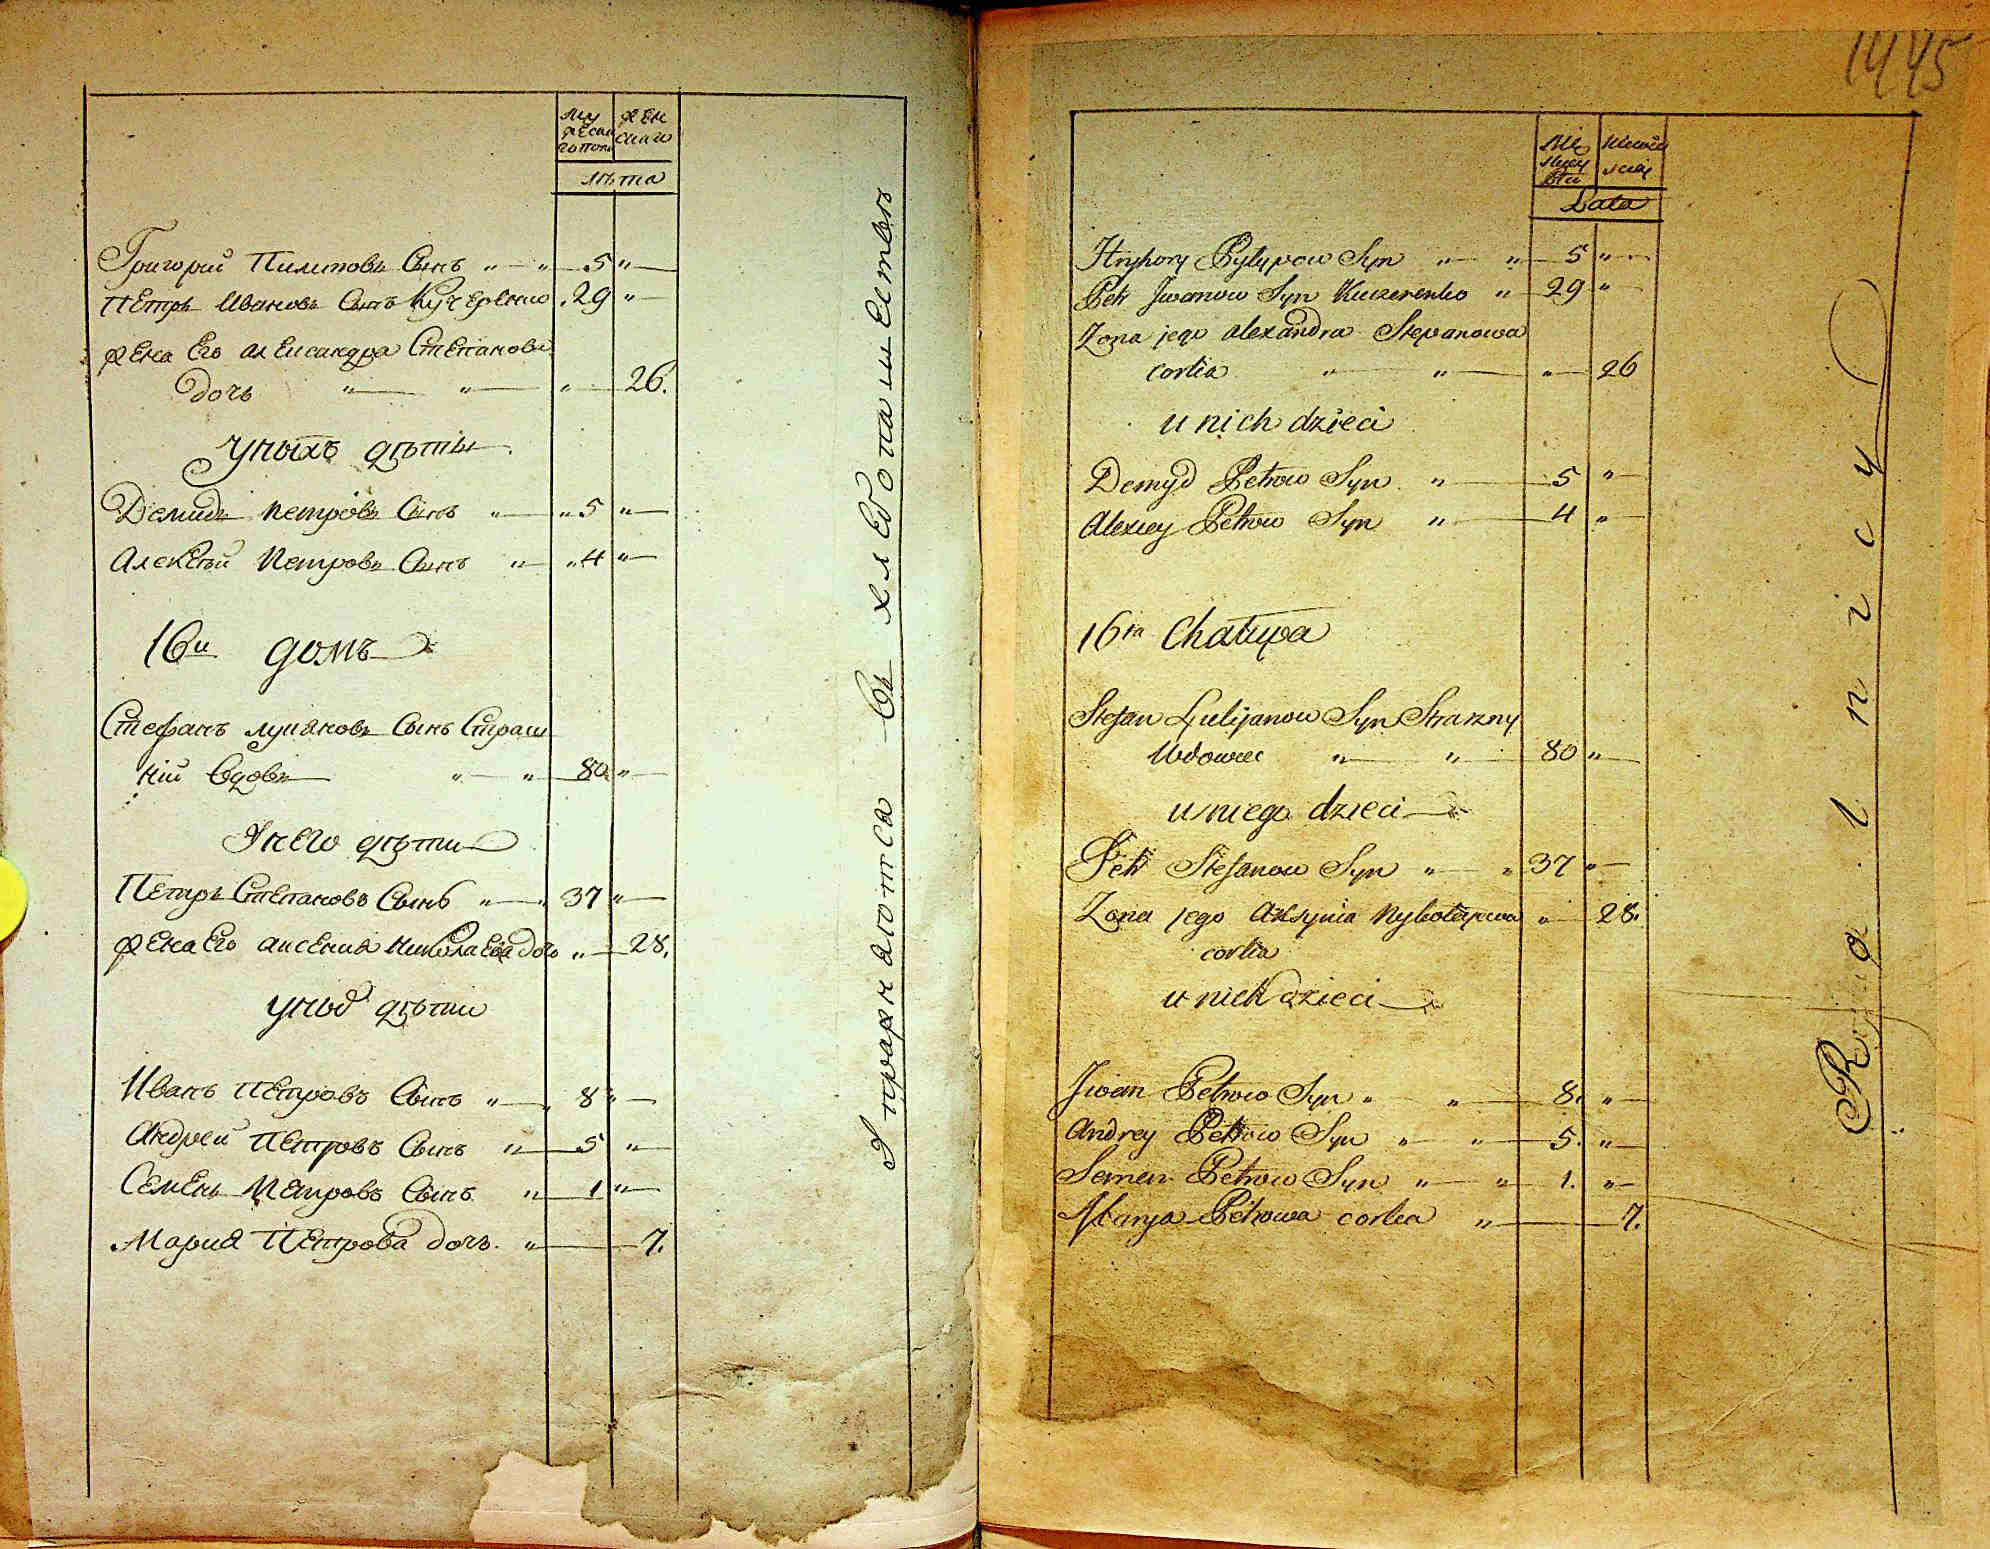 Му
жеска
го пола
жен
скаго
лѣта
Григорий Пилиповъ Сынъ " " 5 "
Петръ Ивановъ Сынъ Кучеренко 29 "
Жена Его александра Степанова
дочь " " " 26.
У ныхъ дѣты
Демидъ петровъ Сынъ " " 5 "
Алексѣй Петровъ Сынъ " " 4 "
16й домъ
Стефанъ лукяновъ Сынъ Страш
ній вдовъ " " 80 "
У него дѣти
Петръ Степановъ Сынъ " 37 "
жена Его аксения николаева дочь " 28.
у ных дѣти
Иванъ Петровъ Сынъ " 8 "
Андрей Петровъ Сынъ " 5 "
Семенъ Петровъ Сынъ " 1 "
Мария Петрова дочь " 7.
Упражняются въ хлебопашествѣ
1445
Mę
skiey
Płci
Lata
Hryhory Pylypow Syn " " 5 "
Petr Jwanow Syn Kuczerenko " 29 "
Zona jego alexandra Stepanowa
corka " " " 26
u nich dzieci
Demyd Petrow Syn " 5 "
Alexiey Petrow Syn " 4 "
16ta Chałupa
Stefan Lukijanow Syn Straszny
Wdowiec " " 80 "
u niego dzieci
Petr Stefanow Syn " " 37 "
Zona jego Axsynia Nykołajewa " 28.
corka
u nich dzieci
Jwan Petrow Syn " " 8. "
Andrey Petrow Syn " " 5. "
Semen Petrow Syn " " 1. "
Marya Petrowa corka " 7.
Rolnicy